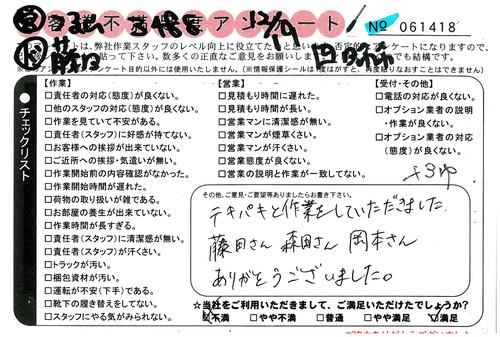 客様不満足度アンケート 12/19 № 061418
ートは、弊社作業スタッフのレベル向上に役立てたと
否定的アンケートになりますので、
貼って下さい。数多くの正直なご意見をお願いしま
でも結構です。
アンケート目的以外には使用いたしません。(※情報保護シール
がすと、再度貼りなおすことはできません)
チェックリスト
【作業】
□責任者の対応(態度)が良くない。
□他のスタッフの対応(態度)が良くない。
□作業を見ていて不安がある。
□責任者(スタッフ)に好感が持てない。
□お客様への挨拶が出来ていない。
□ご近所への挨拶・気遣いが無い。
□作業開始前の内容確認がなかった。
□作業開始時間が遅れた。
□荷物の取り扱いが雑である。
□お部屋の養生が出来ていない。
□作業時間が長すぎる。
□責任者(スタッフ)に清潔感が無い。
□責任者(スタッフ)が汗くさい。
□トラックが汚い。
□梱包資材が汚い。
□運転が不安(下手)である。
□靴下の履き替えをしてない。
□スタッフにやる気がみられない。
【営業】
□見積もり時間に遅れた。
□見積もり時間が長い。
□営業マンに清潔感が無い。
□営業マンが煙草くさい。
□営業マンが汗くさい。
□営業態度が良くない。
□営業の説明と作業が一致してない。
【受付・その他】
□電話の対応が良くない。
□オプション業者の説明
・作業が良くない。
□オプション業者の対応
(態度)が良くない。
その他、ご意見・ご要望等ありましたらお書き下さい。
テキパキと作業をしていただきました。
藤田さん 森田さん 岡本さん
ありがとうございました。
☆当社をご利用いただきまして、ご満足いただけたでしょうか?
□不満 □やや不満 □普通 □やや満足 □満足